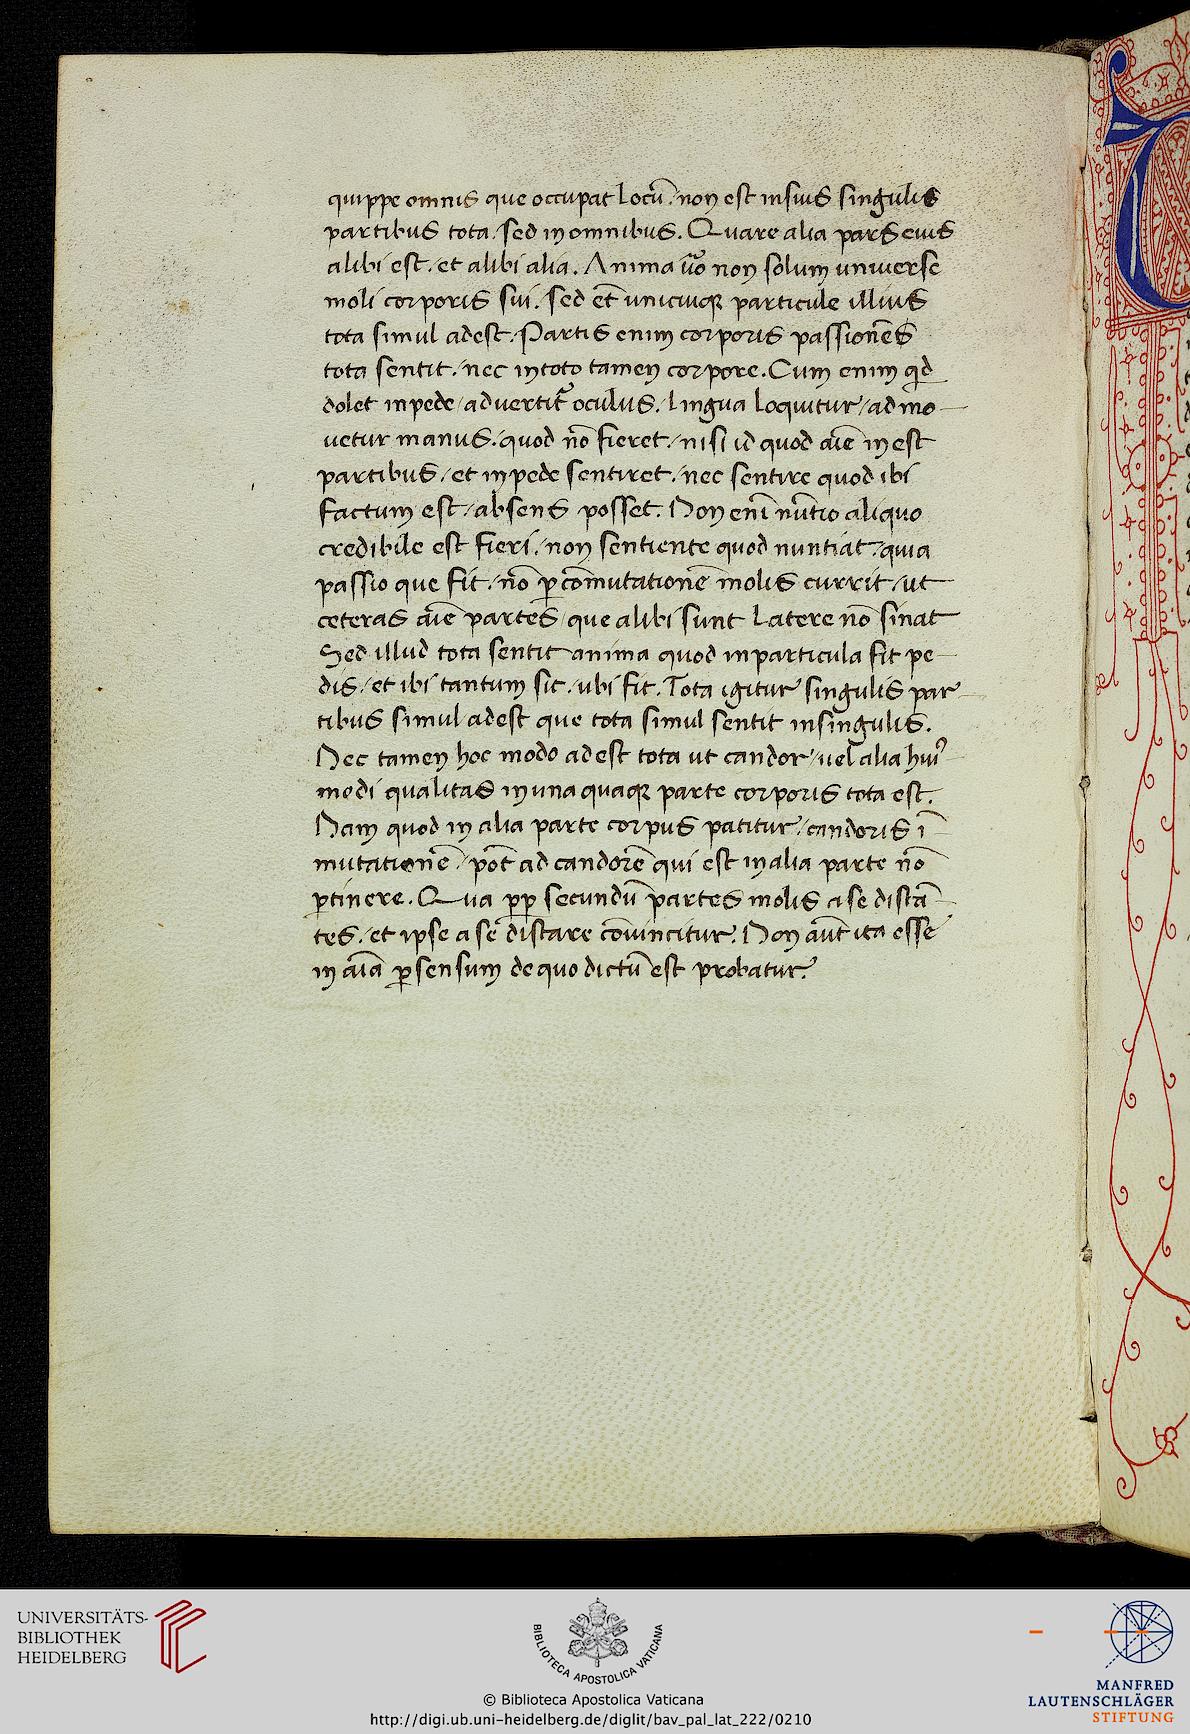 quippe omnis que occupat locũ. non est insuis singulis
partibus tota. sed in omnibus. Quare alia pars eius
alibi est. et alibi alia. Anima ũo non solum uniuerse
moli corporis sui. sed et̃ unicuiqꝫ particule illius
tota simul adest. Partis enim corporis passiones
tota sentit. nec intoto tamen corpore. Cum enim qd
dolet inpede / advertit᷑ oculus. lingua loquitur / ad mo
uetur manus. quod nõ fieret. / nisi id quod aĩe in est
partibus / et inpede sentiret. / nec sentire quod ibi
factum est / absens posset. Non enĩ nũtio aliquo
credibile est fieri. / non sentiente quod nuntiat / quia
passio que fit / nõ ꝑ cõmutationẽ molis currit / ut
ceteras aĩe partes / que alibi sunt latere nõ sinat
Sed illud tota sentit anima quod inparticula fit pe
dis / et ibi tantum sit. / ubi fit. Tota igitur singulis par
tibus simul adest que tota simul sentit insingulis.
Nec tamen hoc modo adest tota ut candor / uel alia huiꝰ
modi qualitas inuna quaqꝫ parte corporis tota est.
Nam quod in alia parte corpus patitur / candoris ĩ
mutationẽ / pot̃ ad candorẽ qui est inalia parte nõ
ꝑtinere. Qua ꝓp secundũ partes molis a se distã
tes. / et ipse a se distare cõuincitur. Non aũt ita esse
in aĩa ꝑ sensum de quo dictũ est probatur.
UNIVERSITÄTS-
BIBLIOTHEK
HEIDELBERG
BIBLIOTECA APOSTOLICA VATICANA
© Biblioteca Apostolica Vaticana
http://digi.ub.uni-heidelberg.de/diglit/bav_pal_lat_222/0210
MANFRED
LAUTENSCHLÄGER
STIFTUNG